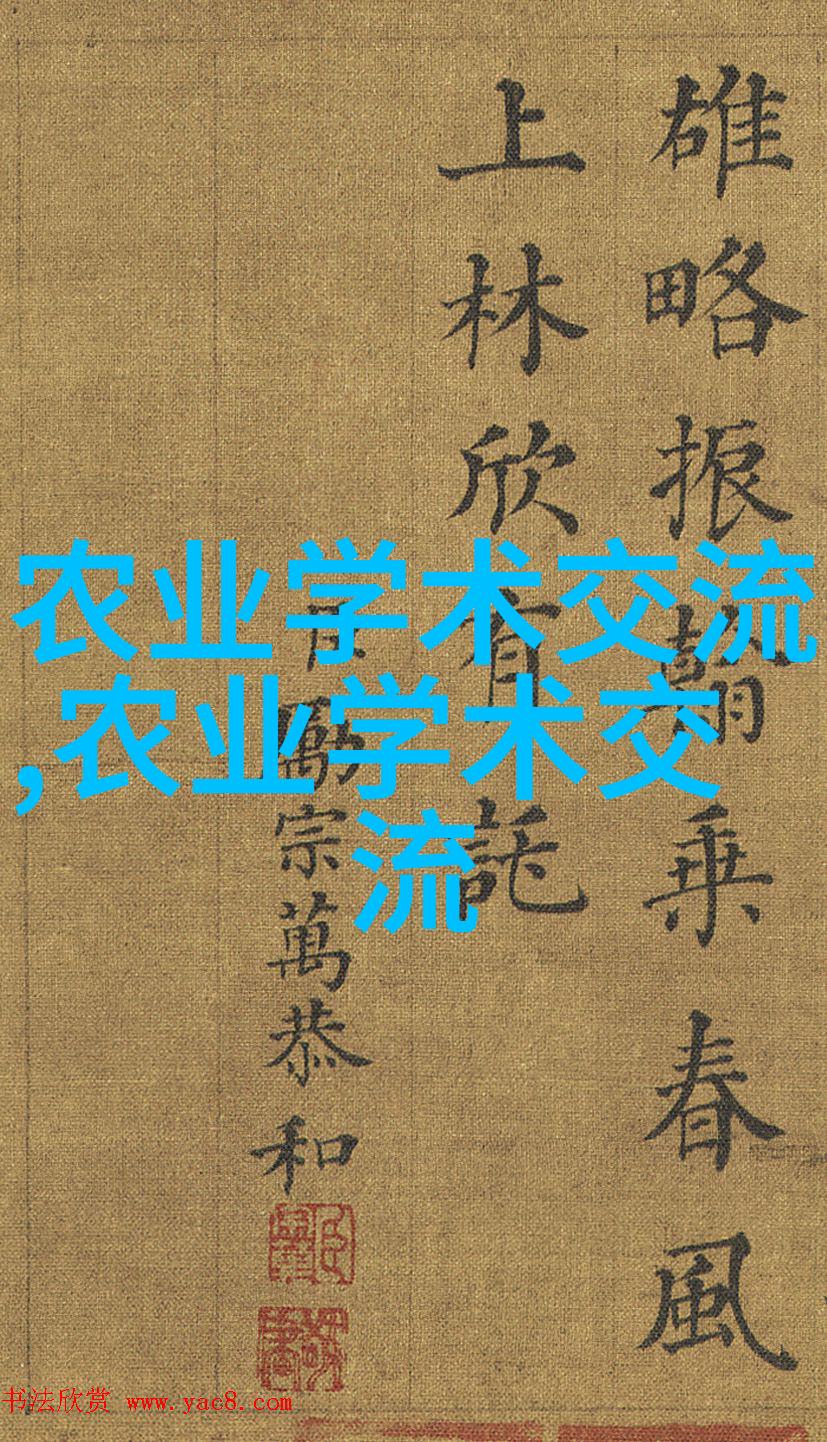 雄略振翰乘春風
上林欣有託
臣勵宗萬恭和
农业学术交流
,农业学术交
流
书法欣赏 www.yac8.com